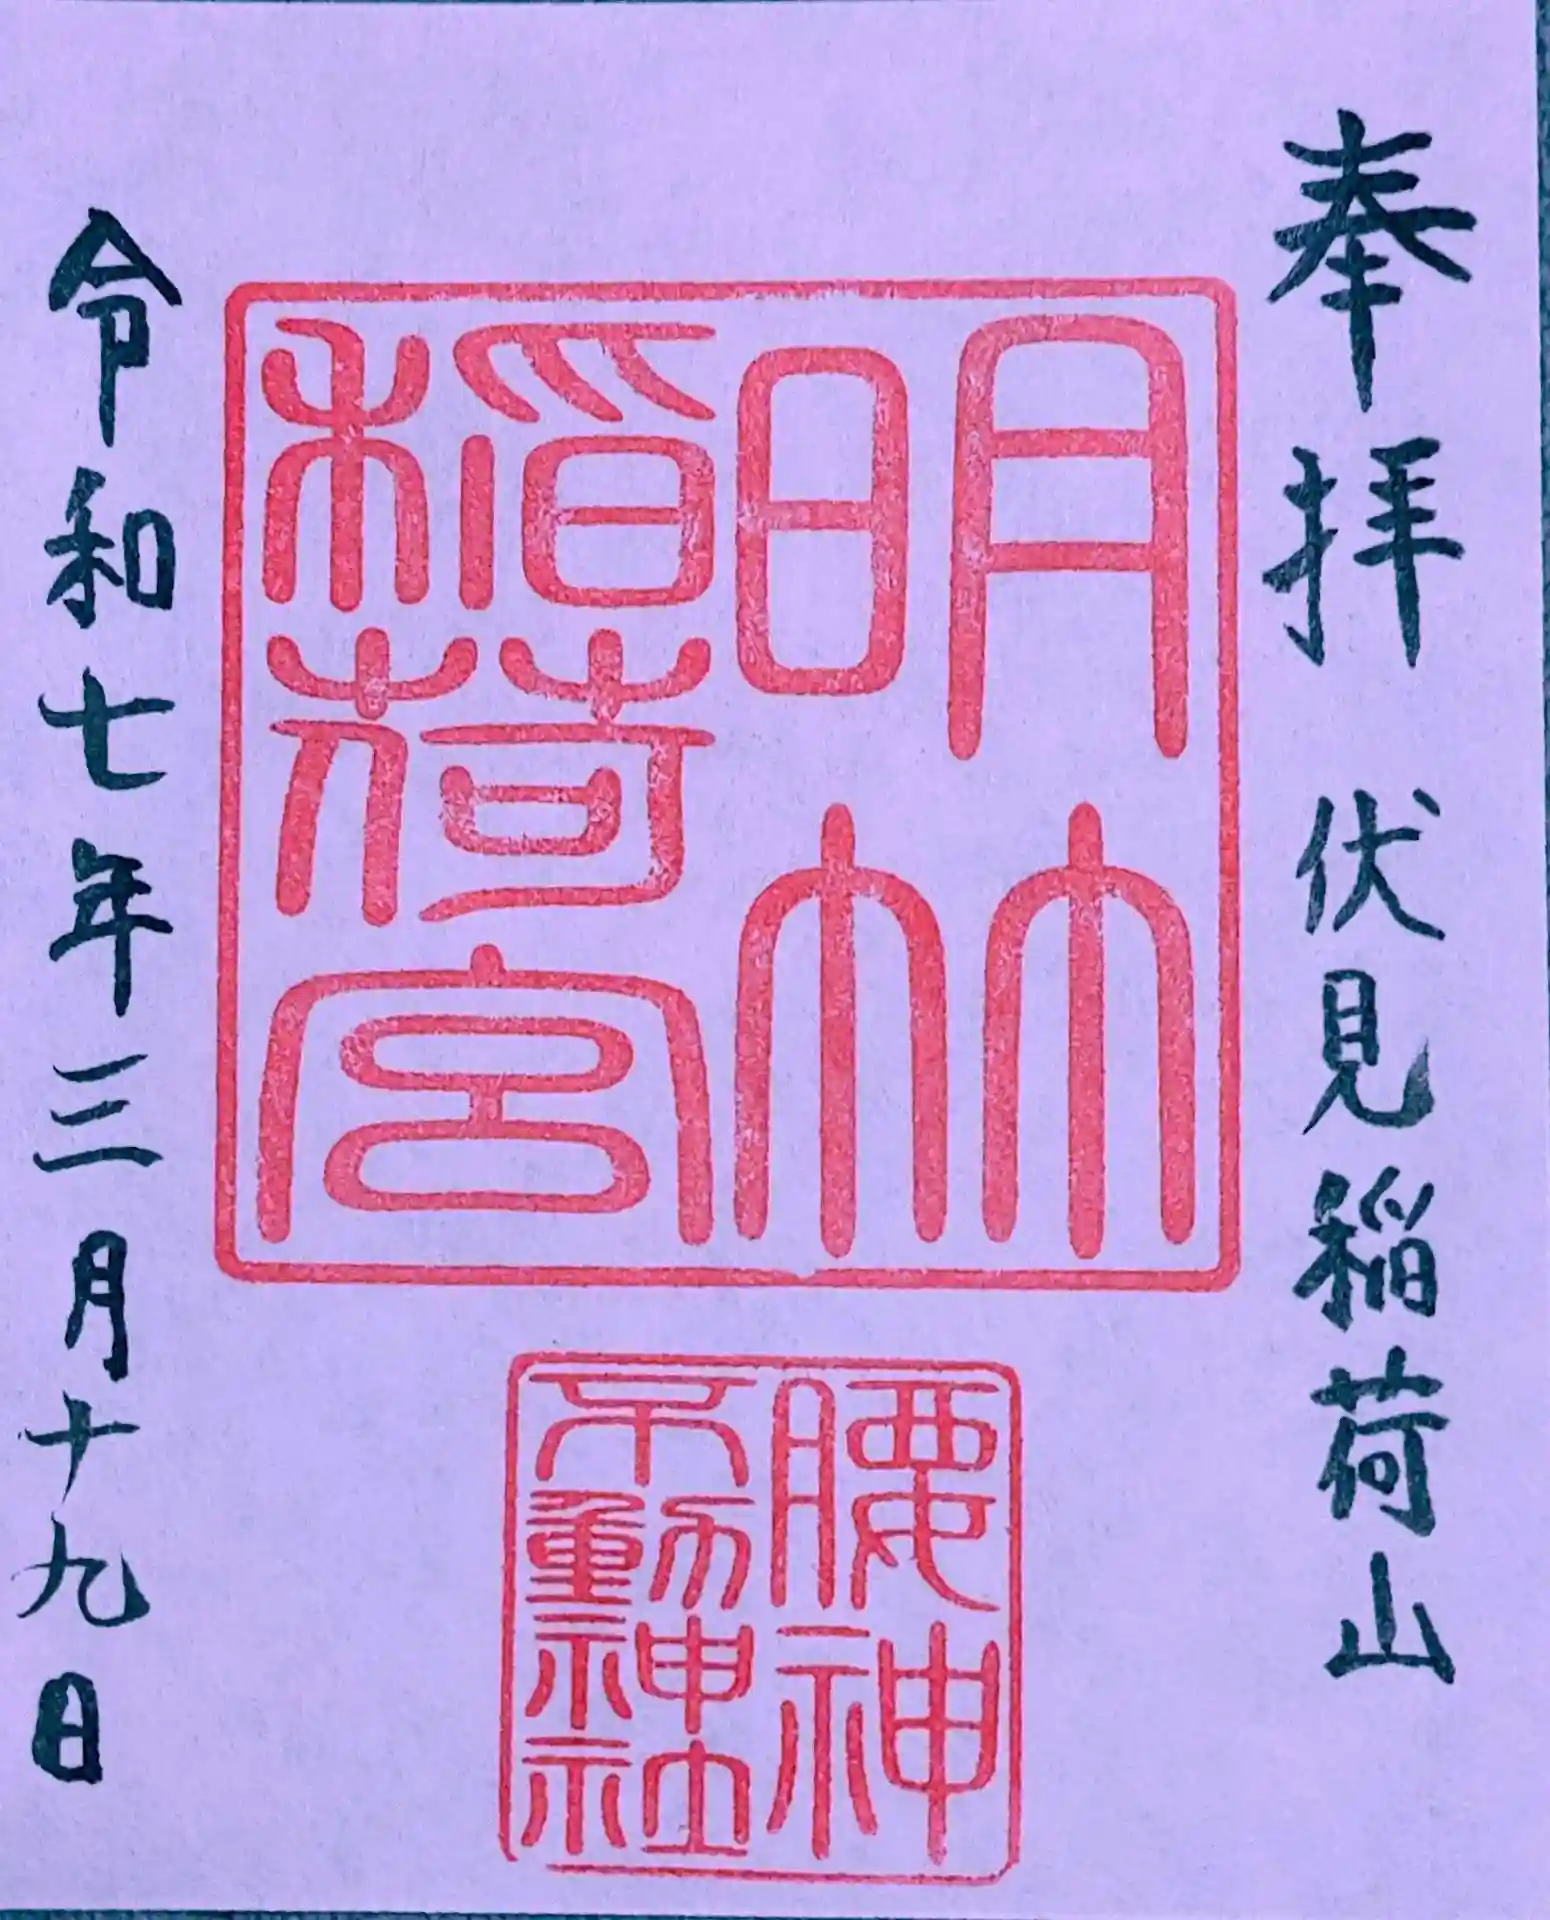 奉拝 伏見稲荷山
明竹
稲荷宮
腰神
不動神社
令和七年三月十九日